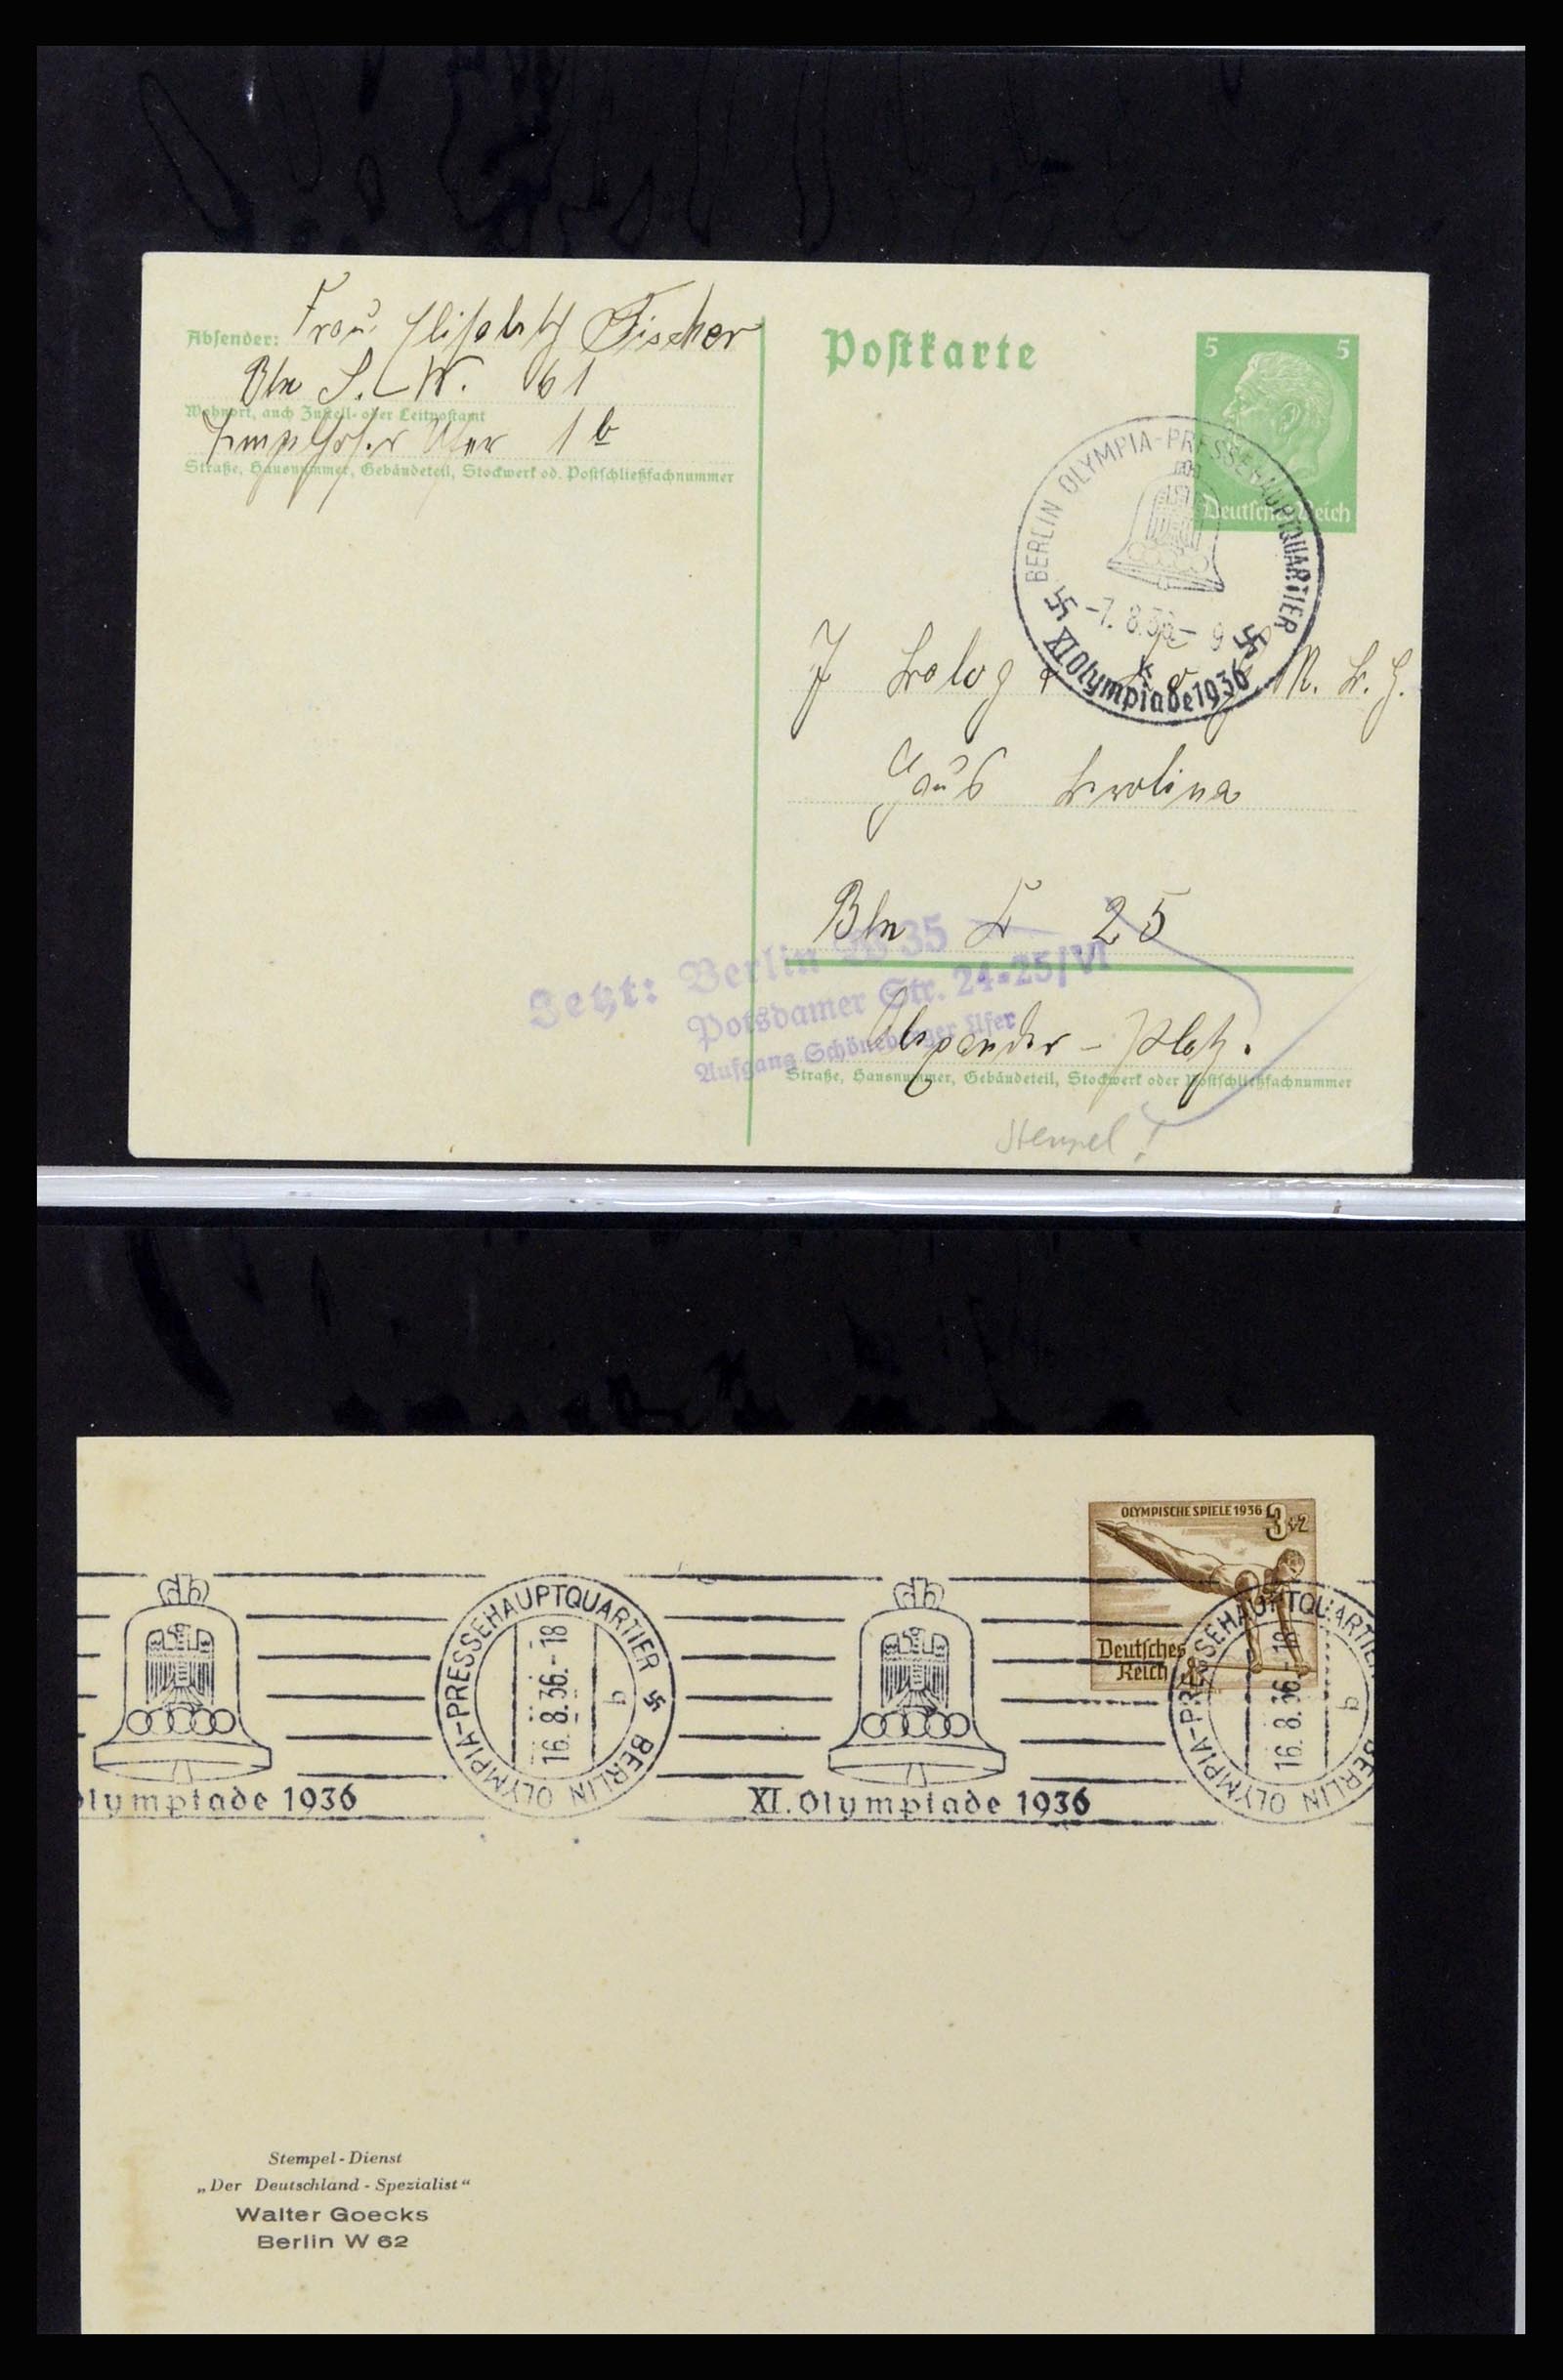 Absender: Frau Elisabeth Fischer
Bln S.W. 61
Wohnort, auch Zustell- oder Leitpostamt
Tempelhofer Ufer 1 b
Straße, Hausnummer, Gebäudeteil, Stockwerk od. Postschließfachnummer
Postkarte
5 5
Deutsches Reich
BERLIN OLYMPIA-PRESSEHAUPTQUARTIER
-7. 8.36.- 9
XI Olympiade 1936
Haus
Bln 25
Jetzt: Berlin W 35
Potsdamer Str. 24-25/VI
Aufgang Schöneberger Ufer
Alexander-Platz.
Straße, Hausnummer, Gebäudeteil, Stockwerk oder Postschließfachnummer
Stempel!
OLYMPISCHE SPIELE 1936 3+2
Deutsches
Reich
BERLIN OLYMPIA-PRESSEHAUPTQUARTIER
16. 8.36.-18
b
BERLIN OLYMPIA-PRESSEHAUPTQUARTIER
16. 8.36.-18
b
Olympiade 1936
XI. Olympiade 1936
Stempel-Dienst
„Der Deutschland-Spezialist“
Walter Goecks
Berlin W 62